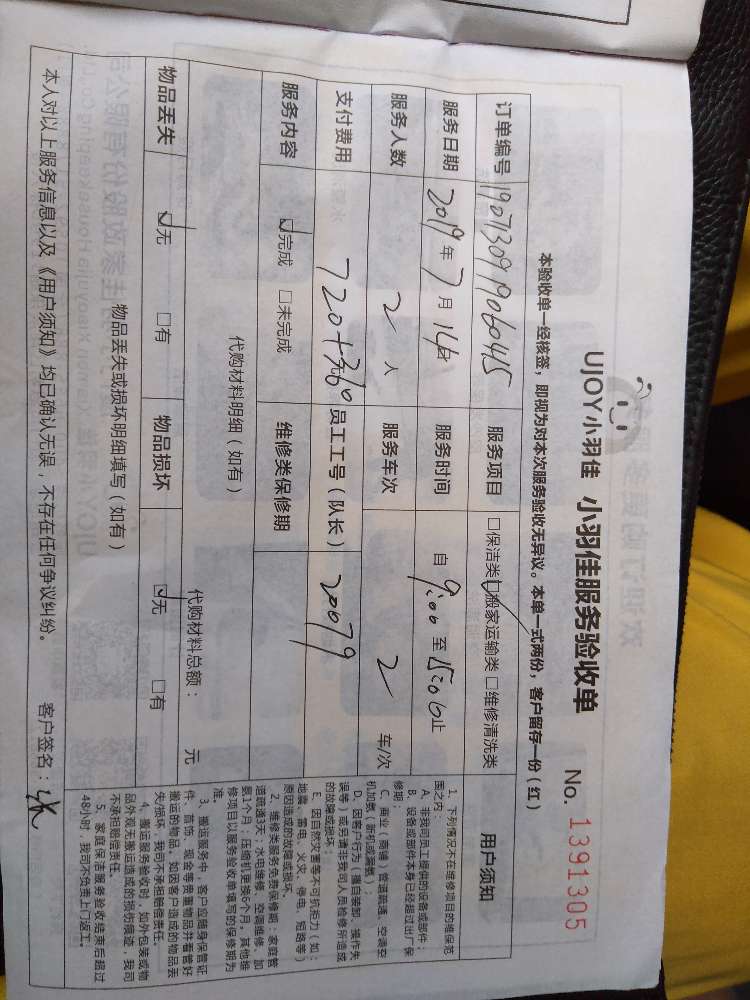 UJOY小羽佳 小羽佳服务验收单 No. 1391305
本验收单一经核签，即视为对本次服务验收无异议。本单一式两份，客户留存一份（红）
订单编号 19071309190604 45 服务项目 □保洁类 ☑搬家运输类 □维修清洗类
服务日期 2019年7月14日 服务时间 自9:00至15:00止
服务人数 2人 服务车次 2 车/次
支付费用 720+360元 员工工号（队长） 20079
服务内容 ☑完成 □未完成 维修类保修期
代购材料明细（如有） 代购材料总额： 元
物品丢失 ☑无 □有 物品损坏 ☑无 □有
物品丢失或损坏明细填写（如有）
本人对以上服务信息以及《用户须知》均已确认无误，不存在任何争议纠纷。 客户签名：
用户须知
1、下列情况不在维修项目的维保范
围之内：
A、非我司员工提供的设备或部件；
B、设备或部件本身已经超过出厂保
修期；
C、商业（商铺）管道疏通、空调空
机加氨（新机或漏氨）；
D、因客户行为（擅自装卸、操作失
误等）或另请非我司人员检修所造成
的故障或损坏；
E、因自然灾害等不可抗拒力（如：
地震、雷电、火灾、停电、短路等）
原因造成的故障或损坏。
2、维修类服务免费保修期：家庭管
道疏通7天；水电维修、空调维修、加
氨1个月；压缩机更换6个月，其他维
修项目以服务验收单填写的保修期为
准。
3、搬运服务中，客户应随身保管证
件、首饰、现金等贵重物品并看管好
搬运的物品。如因客户造成的物品丢
失/损坏，我司不承担赔偿责任。
4、搬运服务验收时，如外包装或物
品外观无搬运造成的损伤痕迹，我司
不承担赔偿责任。
5、家庭保洁服务验收结束后超过
48小时，我司不负责上门返工。